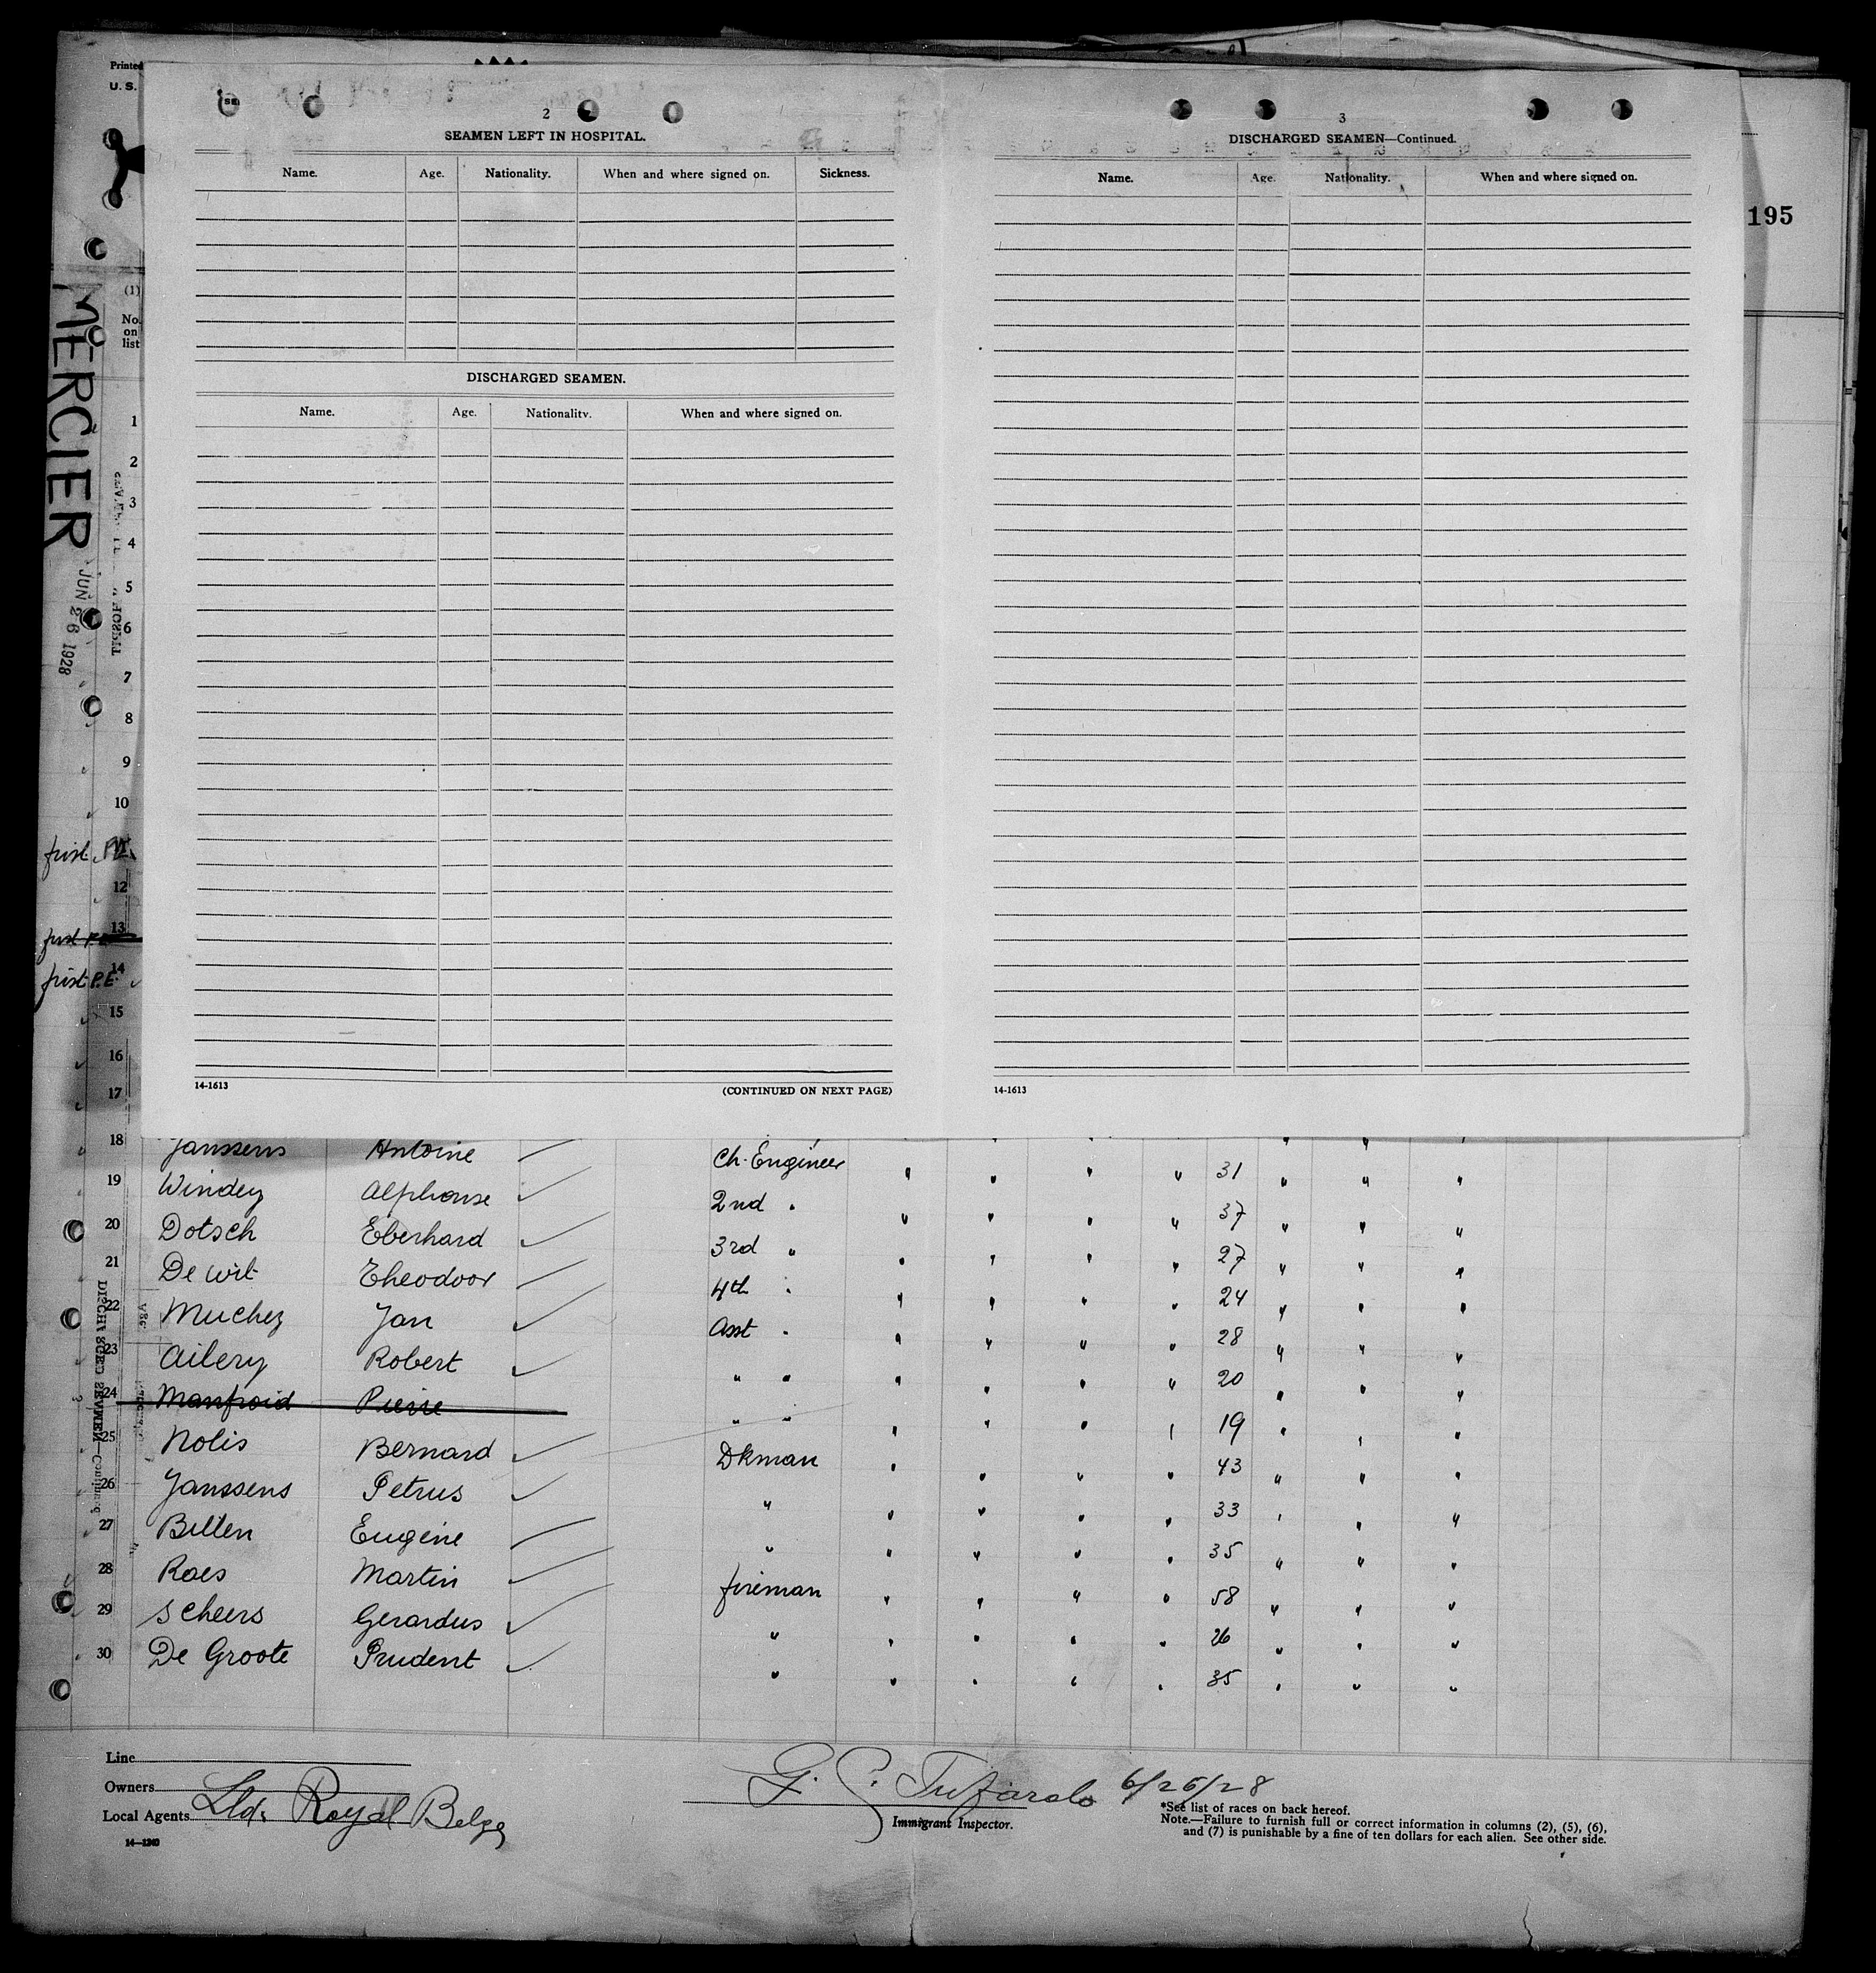 Printed
U. S.
195
MERCIER
JUN 26 1928
(1)
No.
on
list
2
SEAMEN LEFT IN HOSPITAL.
Name. Age. Nationality. When and where signed on. Sickness.
DISCHARGED SEAMEN.
Name. Age. Nationality. When and where signed on.
14-1613 (CONTINUED ON NEXT PAGE)
3
DISCHARGED SEAMEN—Continued.
Name. Age. Nationality. When and where signed on.
14-1613
1
2
3
4
5
6
7
8
9
10
first
12
13
first P.E. 14
15
16
17
18 Janssens Antoine Ch. Engineer " " " " 31 " " "
19 Windey Alphonse 2nd " " " " " 37 " " "
20 Dotsch Eberhard 3rd " " " " " 27 " " "
21 De wit Theodoor 4th " " " " " 24 " " "
22 Muchez Jan Asst " " " " " 28 " " "
23 Ailery Robert " " " " " " 20 " " "
24 Manfroid Pierre " " " " " " 19 " " "
25 Nolis Bernard Dkman " " " " 43 " " "
26 Janssens Petrus " " " " " 33 " " "
27 Billen Eugène " " " " " 35 " " "
28 Raes Martin fireman " " " " 58 " " "
29 Scheers Gerardus " " " " " 26 " " "
30 De Groote Prudent " " " " " 35 " " "
Line
Owners
Local Agents Lld. Royal Belge
14—1240
6/26/28
Immigrant Inspector.
*See list of races on back hereof.
Note.—Failure to furnish full or correct information in columns (2), (5), (6),
and (7) is punishable by a fine of ten dollars for each alien. See other side.